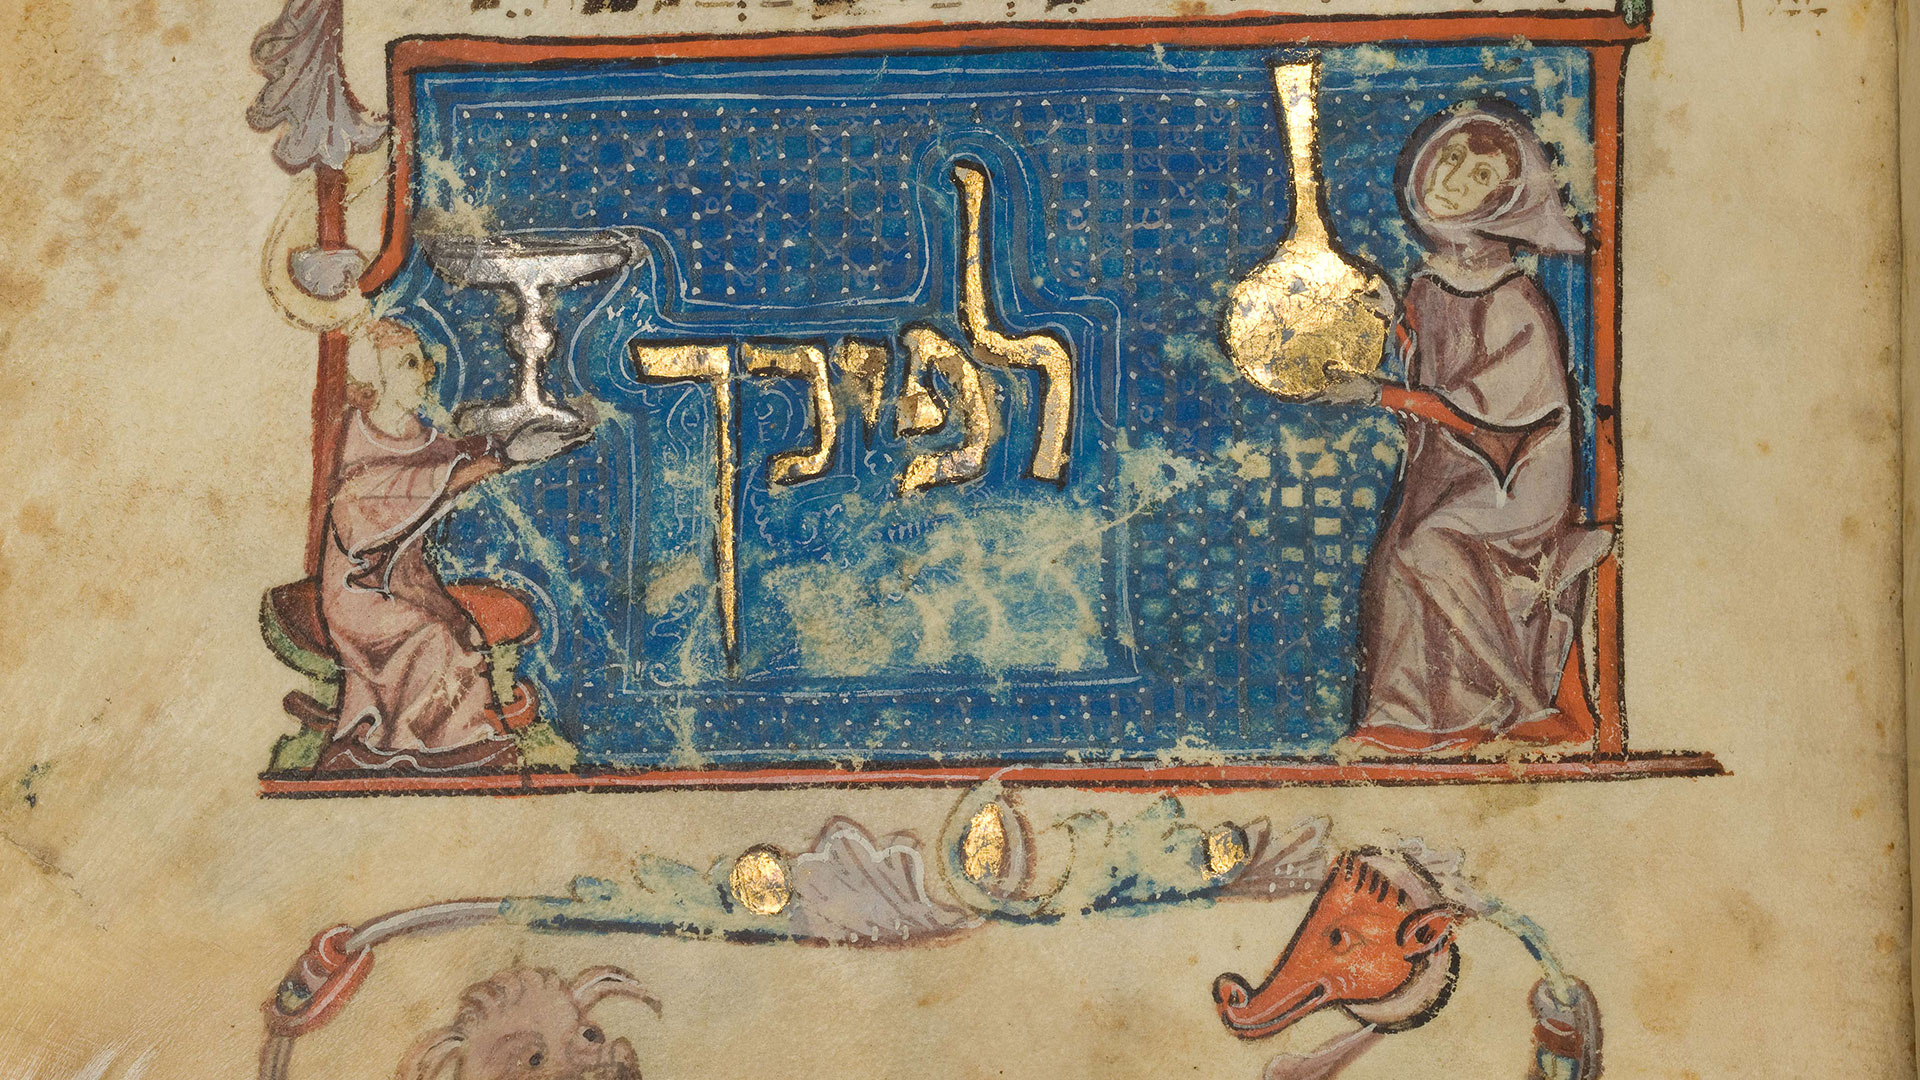 לפיכך